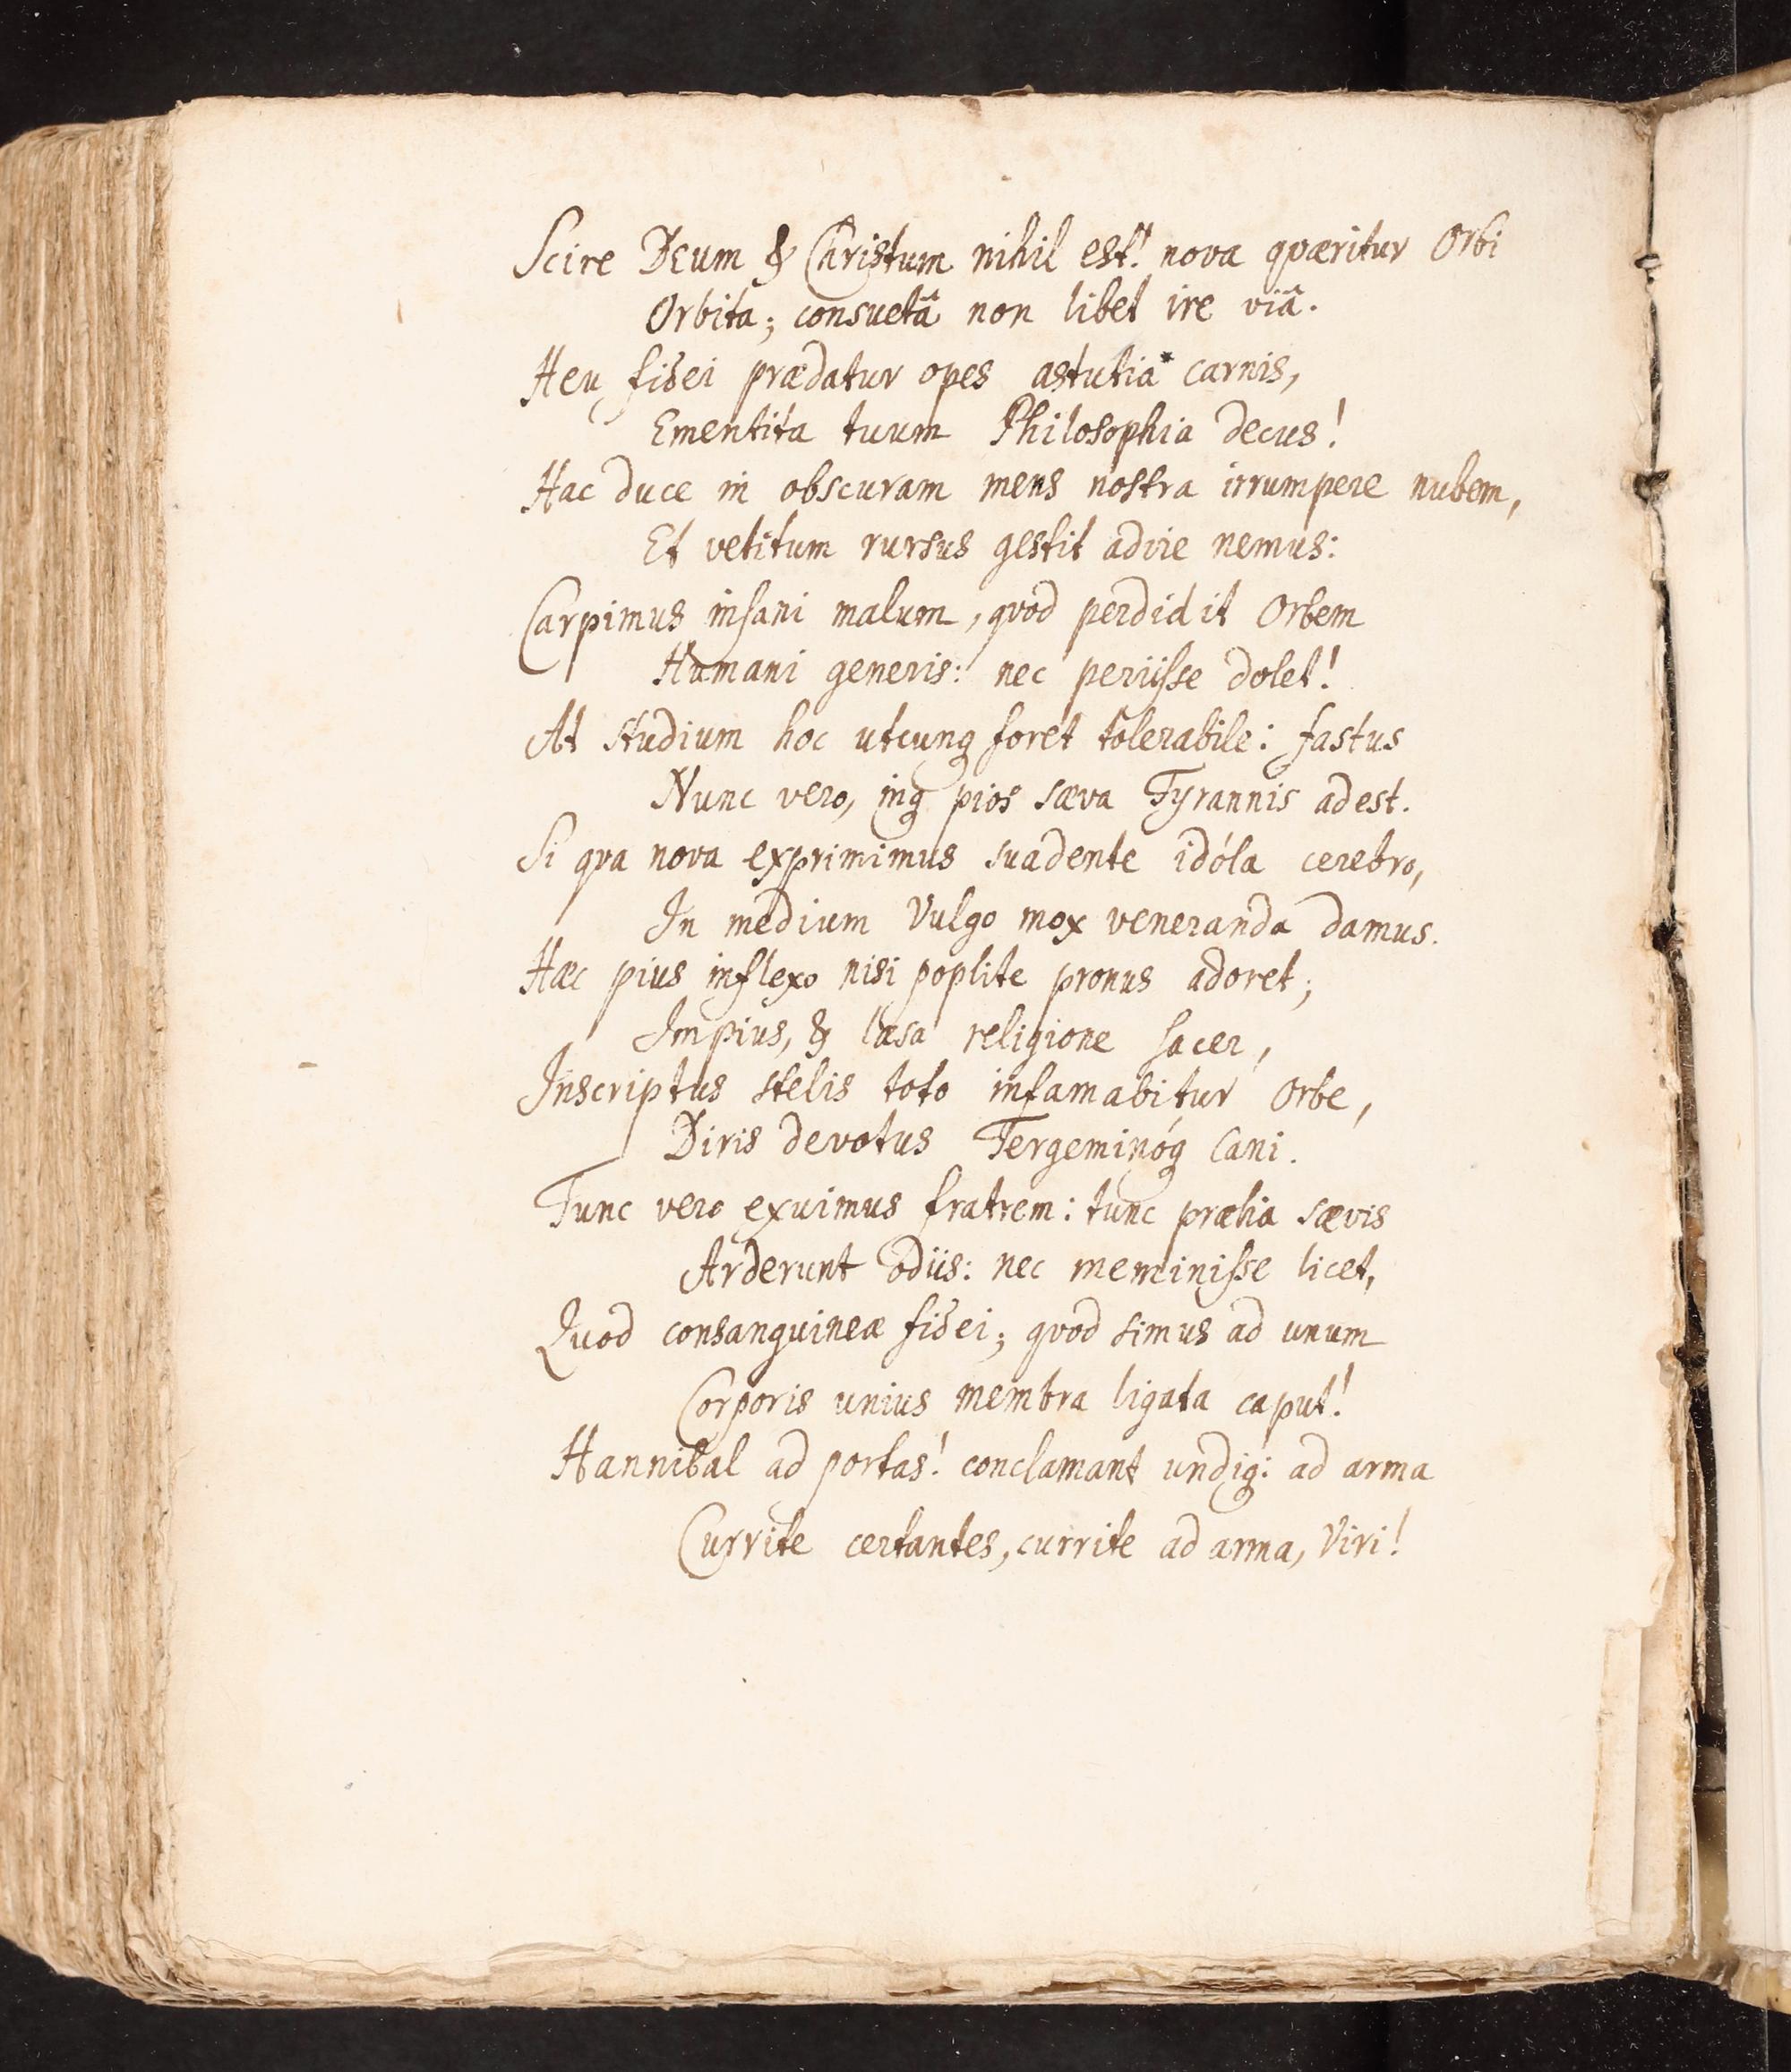 Scire Deum & Christum nihil est! nova qværitur Orbi
Orbita; consuetâ non libet ire viâ.
Heu, fidei prædatur opes astutia* carnis,
Ementita tuum Philosophia decus!
Hac duce in obscuram mens nostra irrumpere nubem,
Et vetitum rursus gestit adire nemus:
Carpimus insani malum, qvod perdidit Orbem
Humani generis: nec periisse dolet!
At studium hoc utcunq foret tolerabile: fastus
Nunc vero, inq pios sæva Tyrannis adest.
Si qva nova exprimimus suadente idóla cerebro,
In medium Vulgo mox veneranda damus.
Hæc pius inflexo nisi poplite pronus adoret;
Impius, & læsa religione sacer,
Inscriptus stelis toto infamabitur Orbe,
Diris devotus Tergeminóq Cani.
Tunc vero exuimus fratrem: tunc prælia sævis
Arderunt odiis: nec meminisse licet,
Quod consanguineæ fidei; qvod simus ad unum
Corporis unius membra ligata caput!
Hannibal ad portas! conclamant undiq: ad arma
Currite certantes, currite ad arma, Viri!